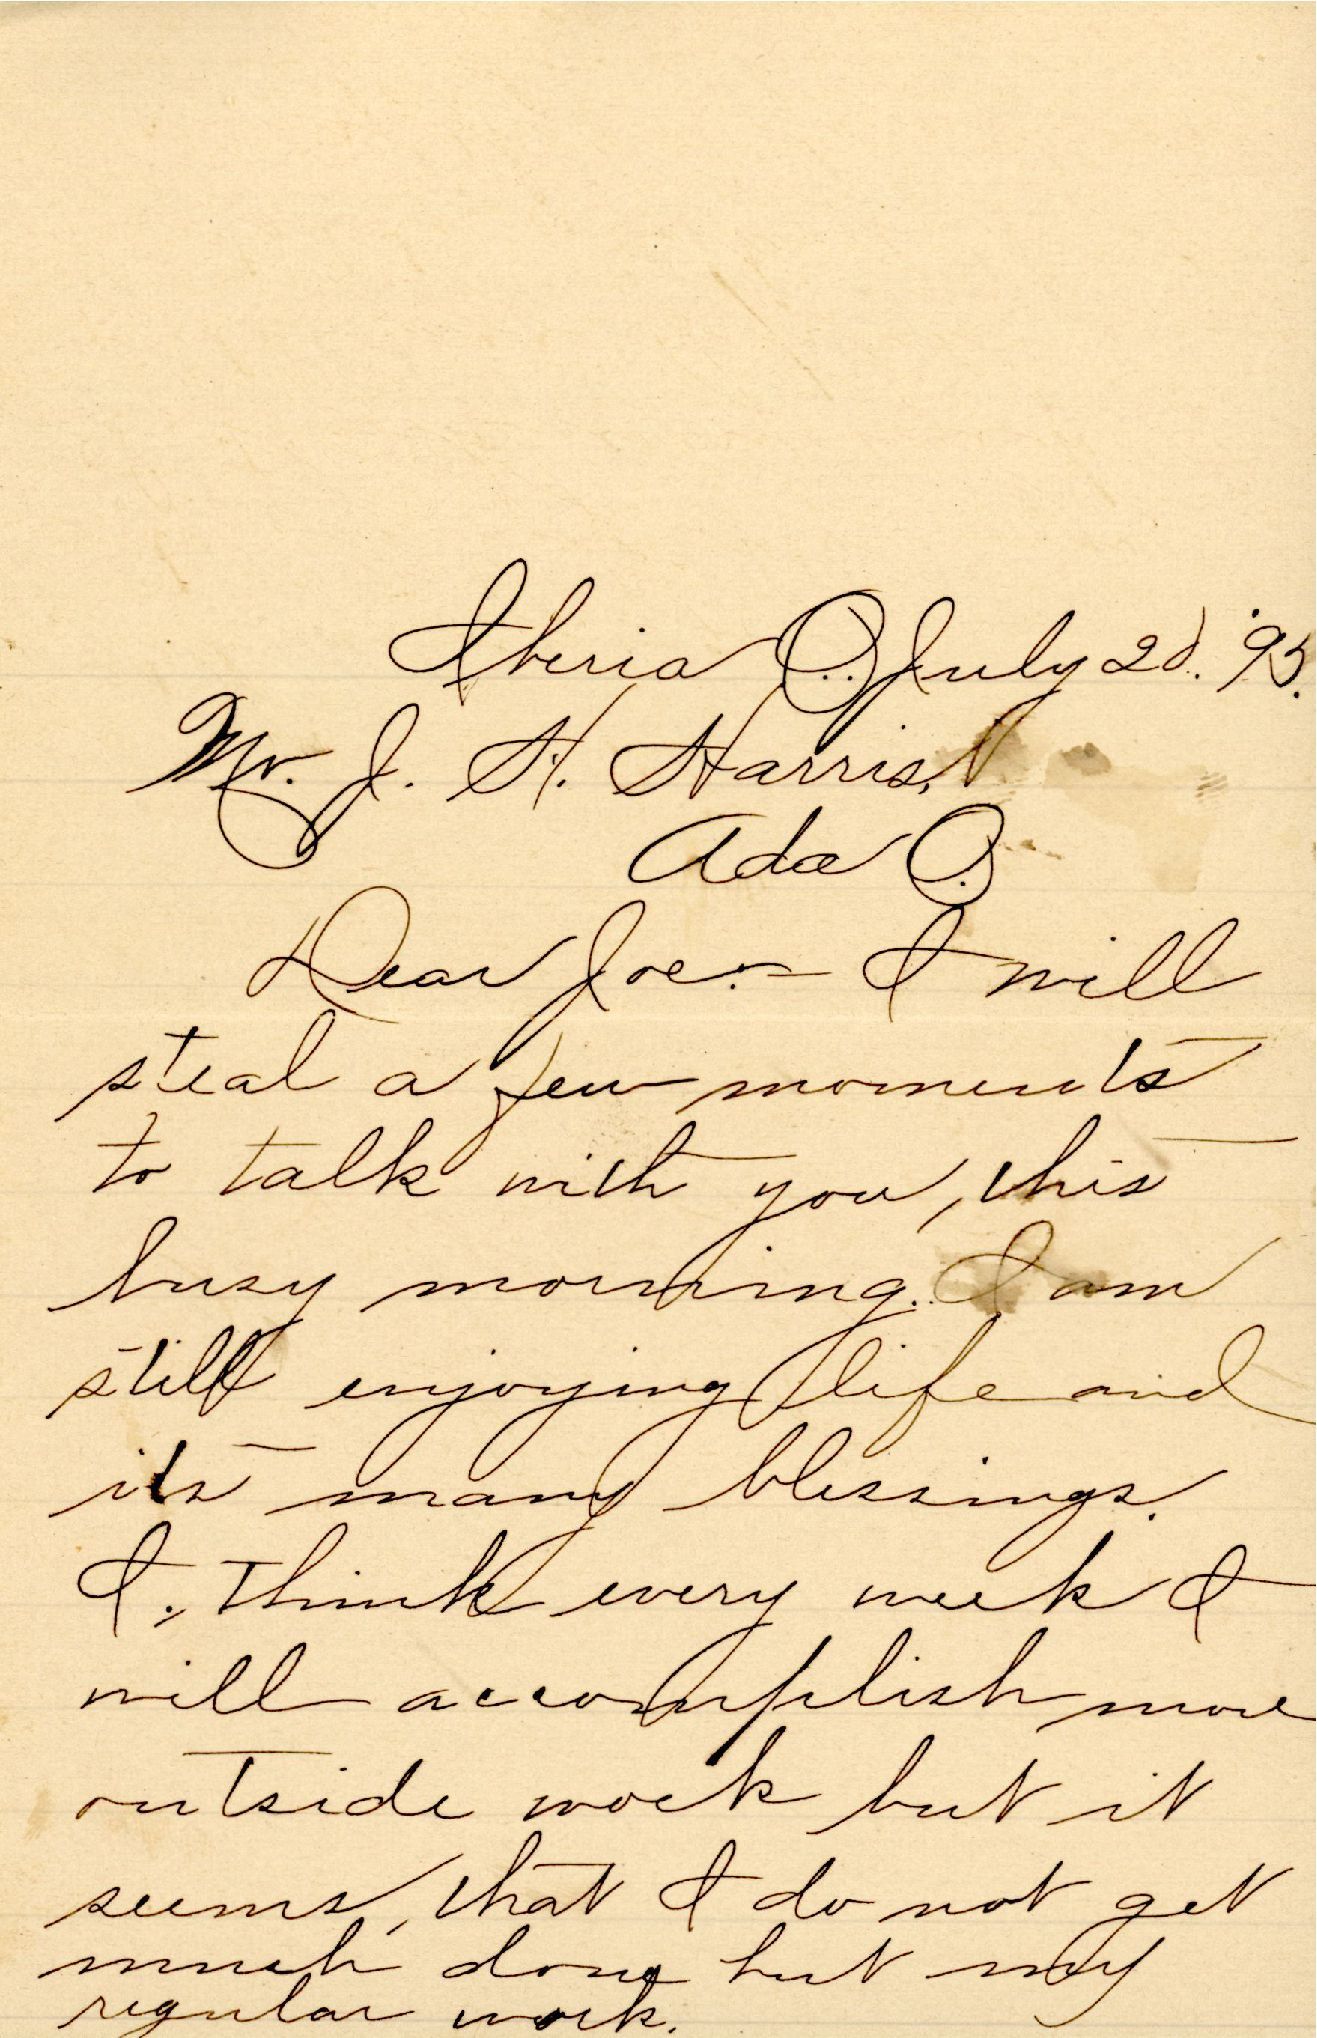 Iberia O. July 20. '95.
Mr. J. H. Harris,
Ada O.
Dear Joe:- I will
steal a few moments
to talk with you, this
busy morning. I am
still enjoying life and
its many blessings.
I, think every week I
will accomplish more
outside work but it
seems, that I do not get
much done but my
regular work.